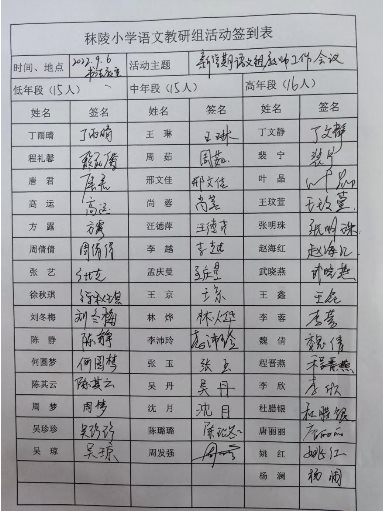 秣陵小学语文教研组活动签到表
时间、地点 2022.9.6 活动主题 新学期语文组教师工作会议
低年段（15人） 中年段（15人） 高年段（16人）
姓名 签名 姓名 签名 姓名 签名
丁雨晴 丁雨晴 王琳 王琳 丁文静 丁文静
程礼馨 程礼馨 周茹 周茹 裴宁 裴宁
唐君 唐君 邢文佳 邢文佳 叶晶 叶晶
高远 高远 尚蓉 尚蓉 王玟萱 王玟萱
方露 方露 汪德萍 汪德萍 张明珠 张明珠
周倩倩 周倩倩 李越 李越 赵海红 赵海红
张艺 张艺 孟庆曼 孟庆曼 武晓燕 武晓燕
徐秋琪 徐秋琪 王京 王京 王鑫 王鑫
刘冬梅 刘冬梅 林烨 林烨 李蓉 李蓉
陈静 陈静 李沛玲 李沛玲 魏倩 魏倩
何圆梦 何圆梦 张玉 张玉 程晋燕 程晋燕
陈其云 陈其云 吴丹 吴丹 李欣 李欣
周梦 周梦 沈月 沈月 杜腊银 杜腊银
吴珍珍 吴珍珍 陈璐璐 陈璐璐 唐丽丽 唐丽丽
吴琼 吴琼 周发强 姚红 姚红
杨澜 杨澜